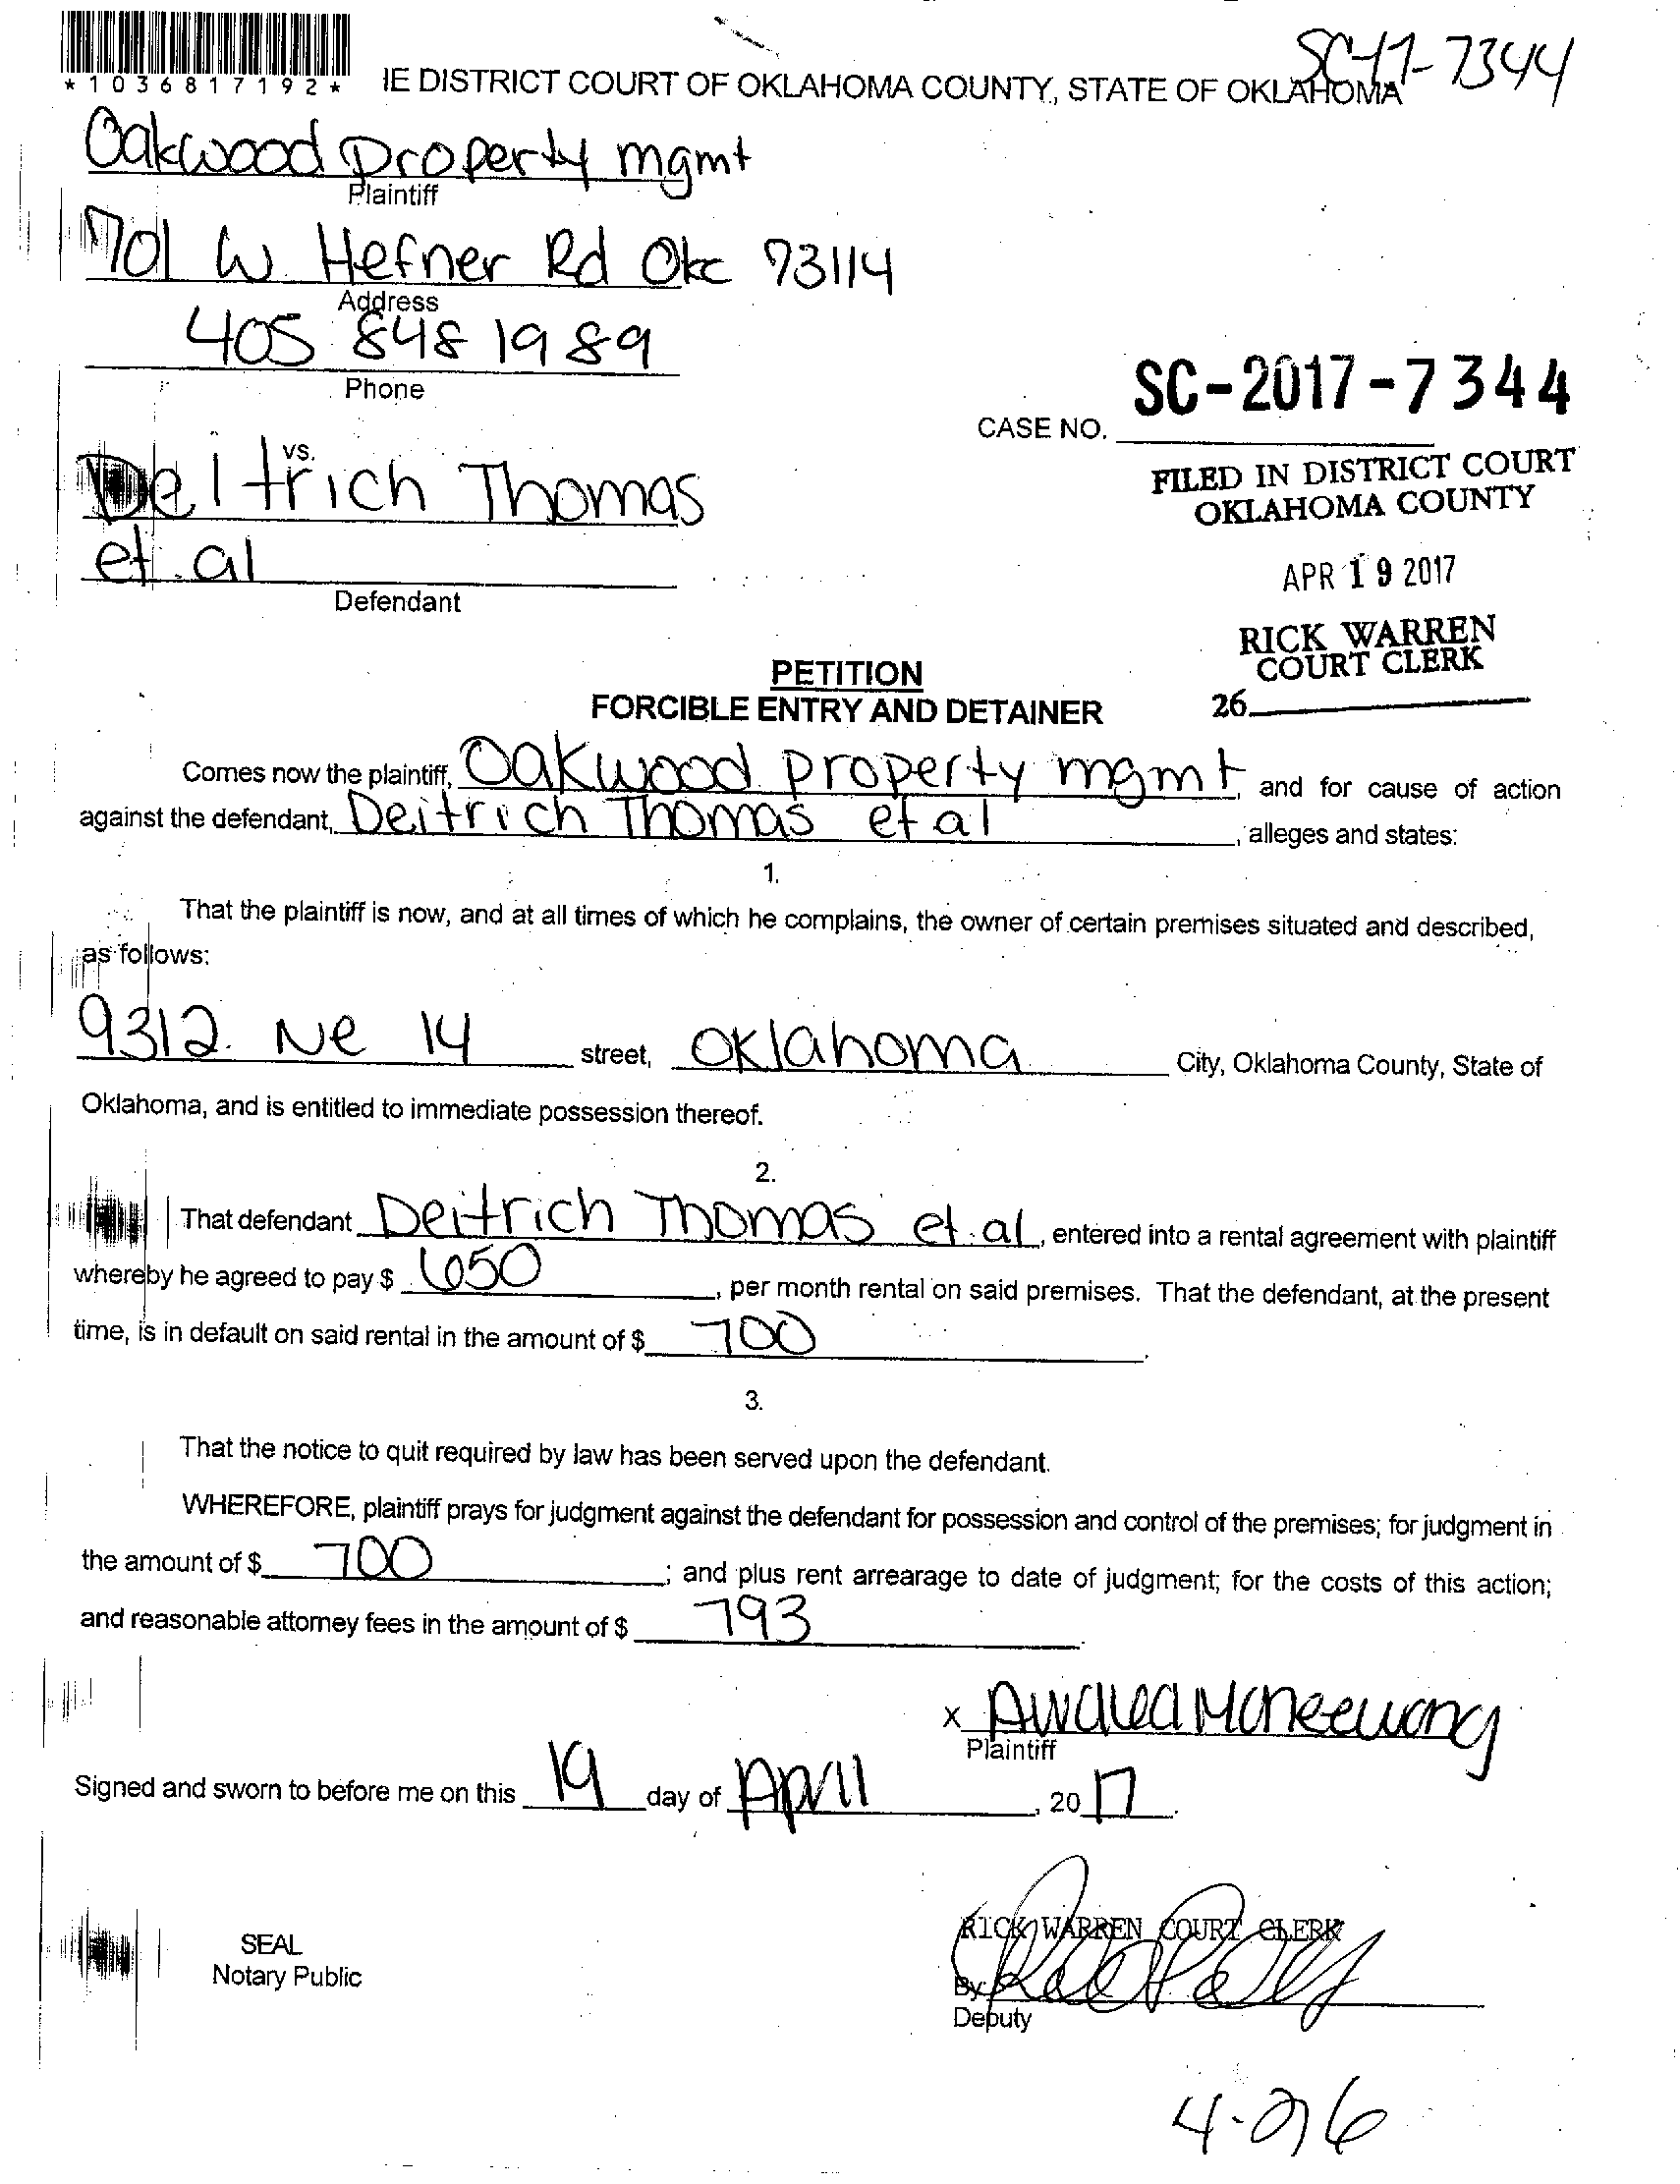 SC-17-7344
*1036817192*
IE DISTRICT COURT OF OKLAHOMA COUNTY, STATE OF OKLAHOMA
Oakwood property mgmt
Plaintiff
701 W Hefner Rd Okc 73114
Address
405 848 1989
Phone
SC-2017-7344
CASE NO.
vs.
Deitrich Thomas
et.al
Defendant
FILED IN DISTRICT COURT
OKLAHOMA COUNTY
APR 19 2017
RICK WARREN
COURT CLERK
26
PETITION
FORCIBLE ENTRY AND DETAINER
Comes now the plaintiff, Oakwood property mgmt, and for cause of action
against the defendant, Deitrich Thomas et al, alleges and states:
1.
That the plaintiff is now, and at all times of which he complains, the owner of certain premises situated and described,
as follows:
9312 Ne 14 street, Oklahoma City, Oklahoma County, State of
Oklahoma, and is entitled to immediate possession thereof.
2.
That defendant Deitrich Thomas et.al, entered into a rental agreement with plaintiff
whereby he agreed to pay $ 650, per month rental on said premises. That the defendant, at the present
time, is in default on said rental in the amount of $ 700.
3.
That the notice to quit required by law has been served upon the defendant.
WHEREFORE, plaintiff prays for judgment against the defendant for possession and control of the premises; for judgment in
the amount of $ 700; and plus rent arrearage to date of judgment; for the costs of this action;
and reasonable attorney fees in the amount of $ 793.
x
Plaintiff
Signed and sworn to before me on this 19 day of April, 2017.
RICK WARREN COURT CLERK
SEAL
Notary Public
By
Deputy
4-26